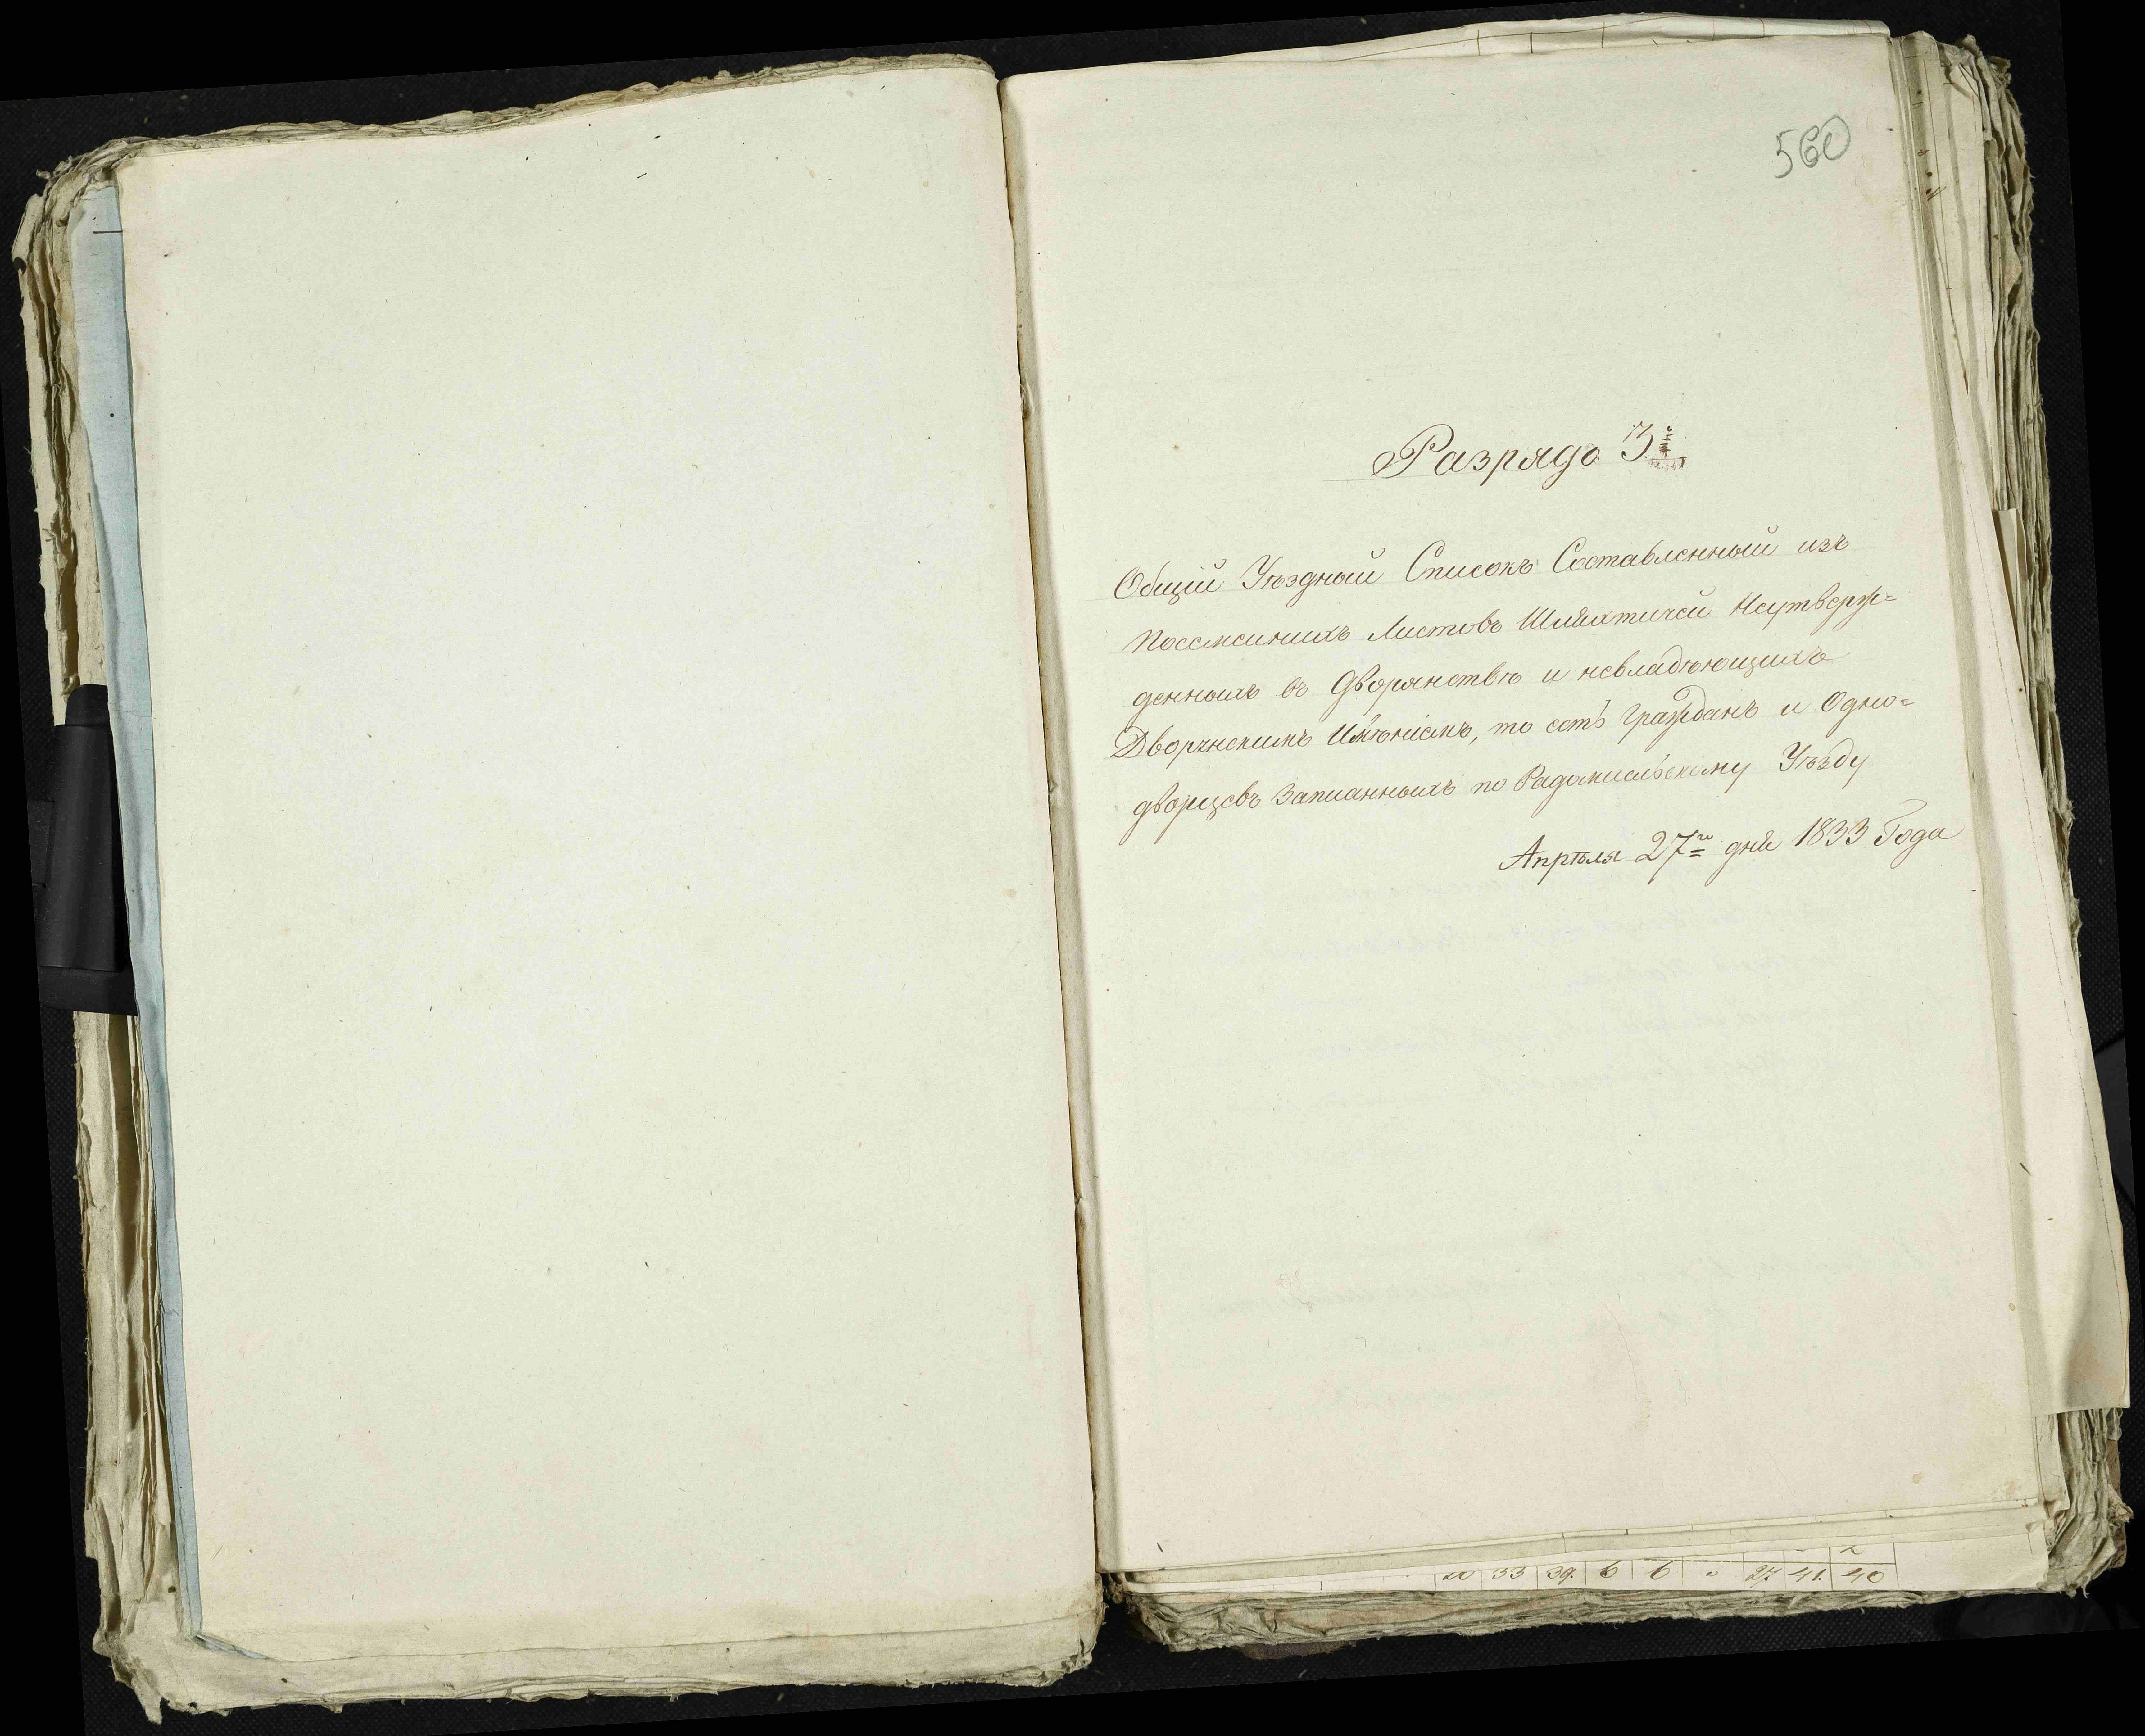 560
Разрядъ 3й
Общій Уѣздный Списокъ Составленный изъ
Посемейныхъ Листовъ Шляхтичей Неутверж=
денныхъ въ Дворянствѣ и невладѣющихъ
Дворянскимъ Имѣніемъ, то есть Гражданъ и Одно=
дворцевъ Записанныхъ по Радомисльскому Уѣзду
Апрѣля 27го дня 1833 Года
20 33 39. 6 6 " 27 41. 40